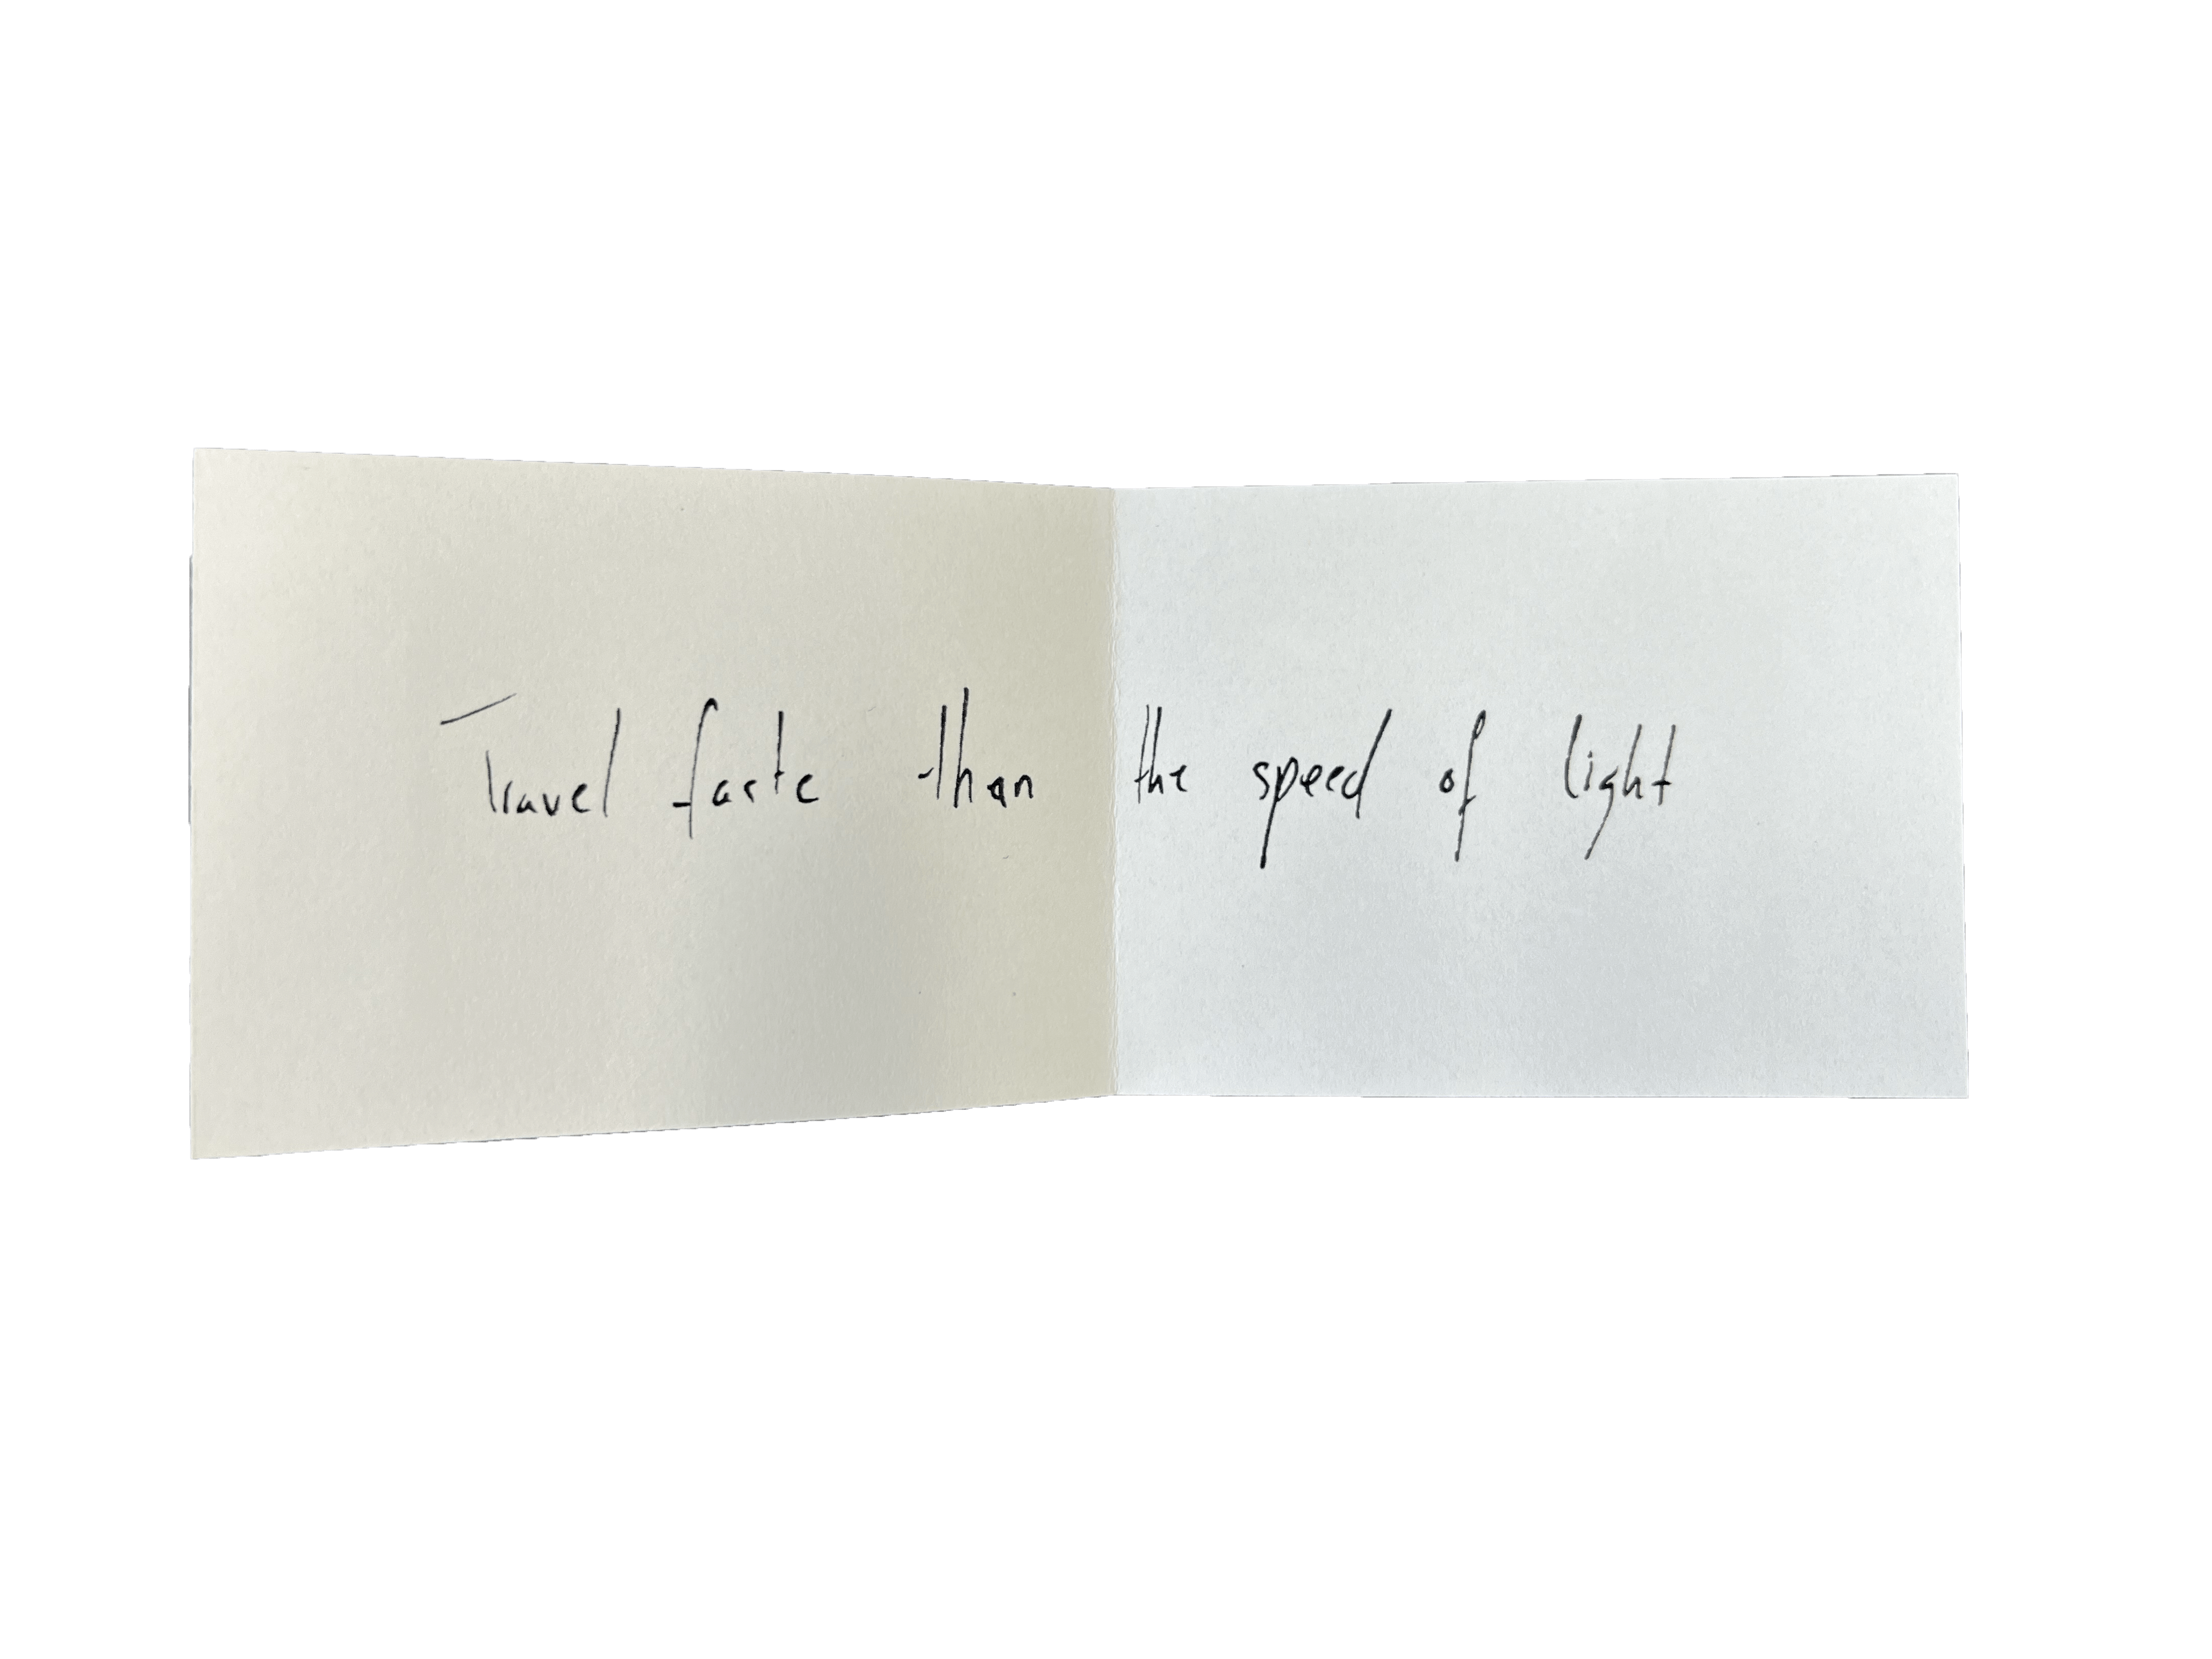 Travel faste than the speed of light